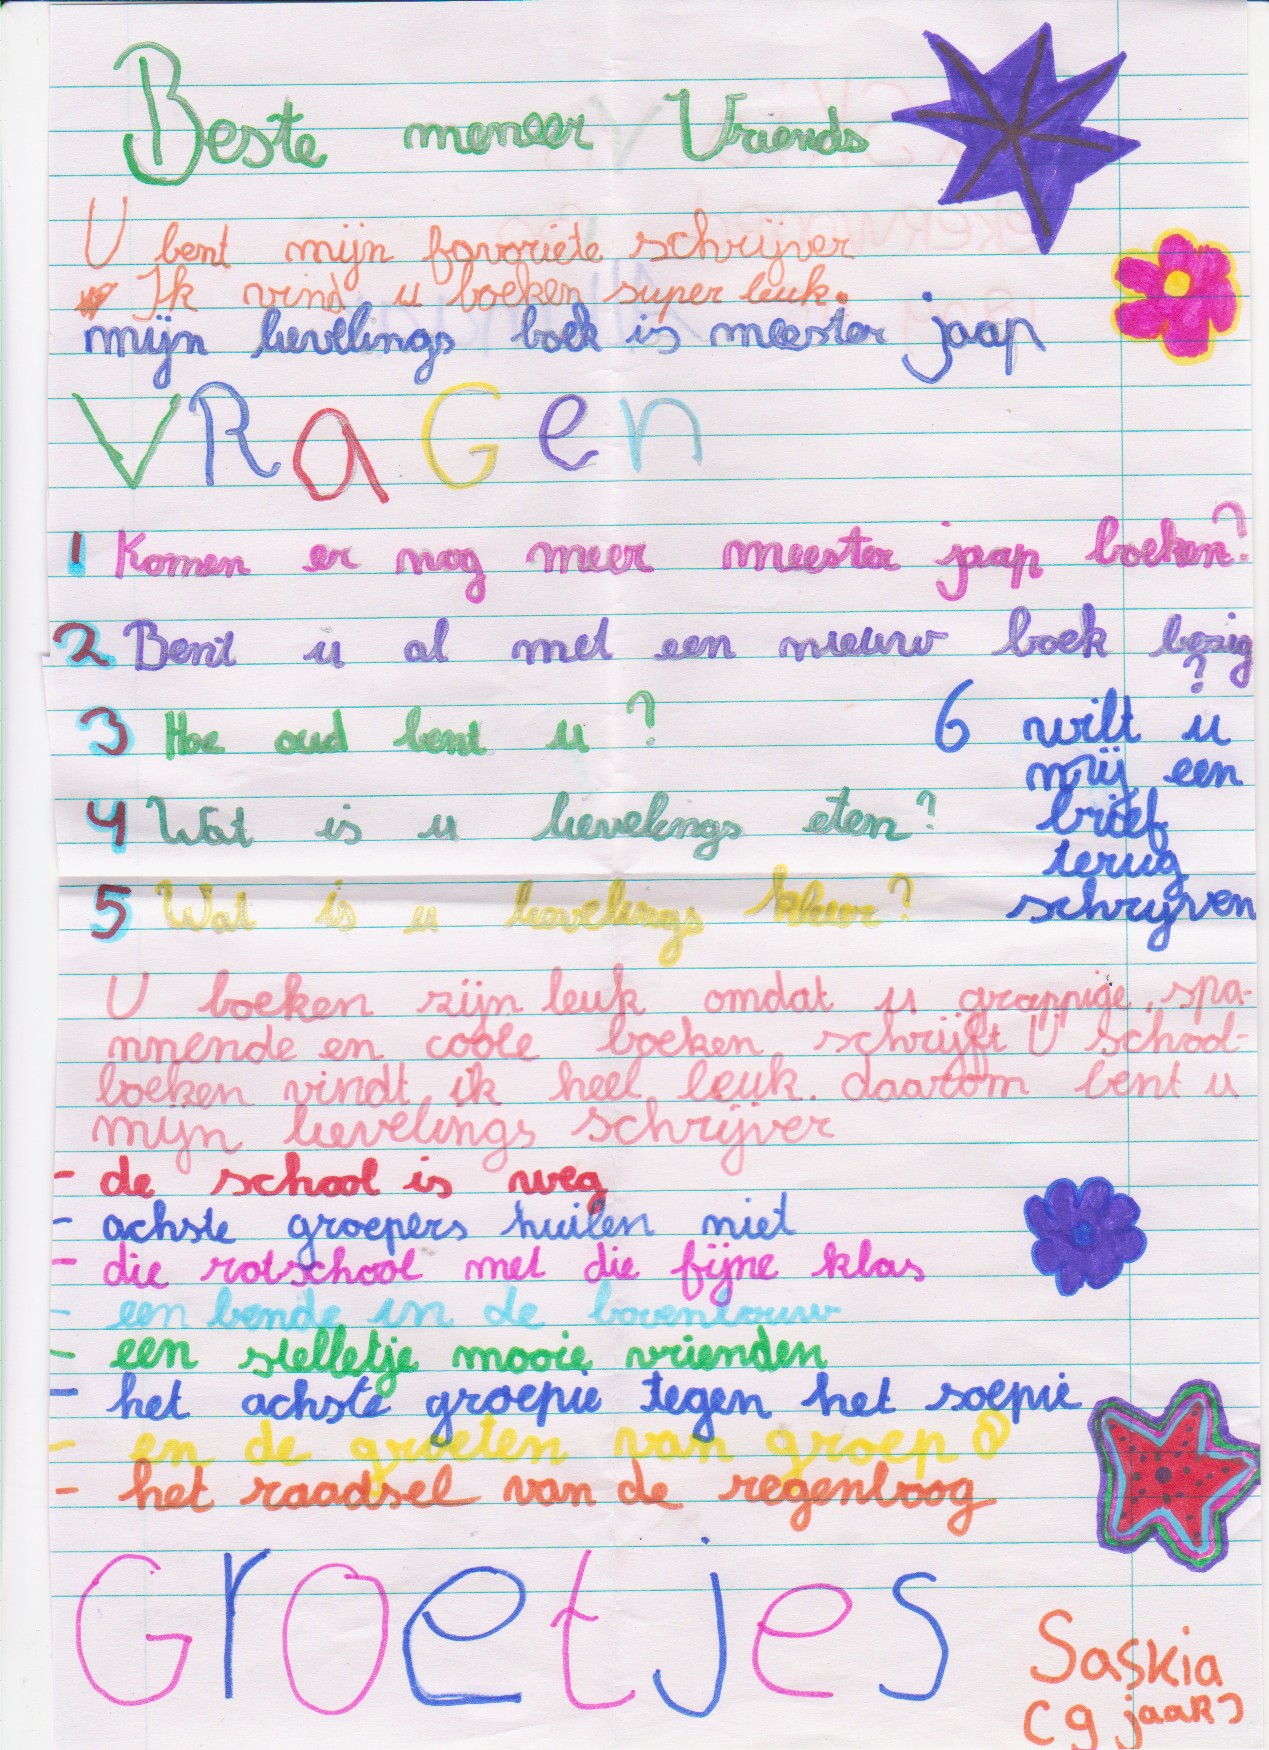 Beste meneer Vriends
U bent mijn favoriete schrijver
Ik vind u boeken super leuk.
mijn lievelings boek is meester jaap
VRaGen
1 Komen er nog meer meester jaap boeken?
2 Bent u al met een nieuw boek bezig
?
3 Hoe oud bent u?
4 Wat is u lievelings eten?
5 Wat is u lievelings kleur?
6 wilt u
mij een
brief
terug
schrijven
U boeken zijn leuk omdat u grappige, spa-
nnende en coole boeken schrijft U school-
boeken vindt ik heel leuk. daarom bent u
mijn lievelings schrijver
- de school is weg
- achste groepers huilen niet
- die rotschool met die fijne klas
- een bende in de bovenbouw
- een stelletje mooie vrienden
- het achste groepie tegen het soepie
- en de groeten van groep 8
- het raadsel van de regenboog
Groetjes
Saskia
(9 jaar)